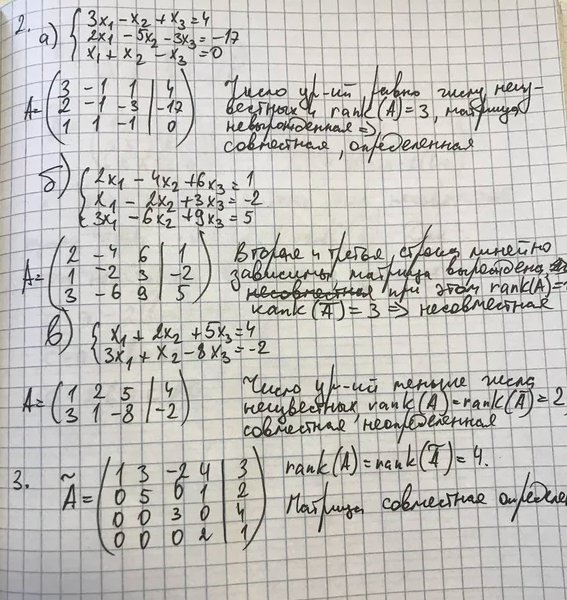 2. а) { 3x₁ - x₂ + x₃ = 4
2x₁ - 5x₂ - 3x₃ = -17
x₁ + x₂ - x₃ = 0
A = ( 3 -1 1 | 4
2 -1 -3 | -17
1 1 -1 | 0 )
Число ур-ий равно числу неиз-
вестных и rank(A) = 3, матрица
невырожденная =>
совместная, определенная
б) { 2x₁ - 4x₂ + 6x₃ = 1
x₁ - 2x₂ + 3x₃ = -2
3x₁ - 6x₂ + 9x₃ = 5
A = ( 2 -4 6 | 1
1 -2 3 | -2
3 -6 9 | 5 )
Вторая и третья строка линейно
зависимы матрица вырождена,
несовместная при этом rank(A) =
rank(A̅) = 3 => несовместная
в) { x₁ + 2x₂ + 5x₃ = 4
3x₁ + x₂ - 8x₃ = -2
A = ( 1 2 5 | 4
3 1 -8 | -2 )
Число ур-ий меньше числа
неизвестных rank(A) = rank(A̅) = 2,
совместная, неопределенная
3. Ã = ( 1 3 -2 4 | 3
0 5 0 1 | 2
0 0 3 0 | 4
0 0 0 2 | 1 )
rank(A) = rank(A̅) = 4.
Матрица совместная определе